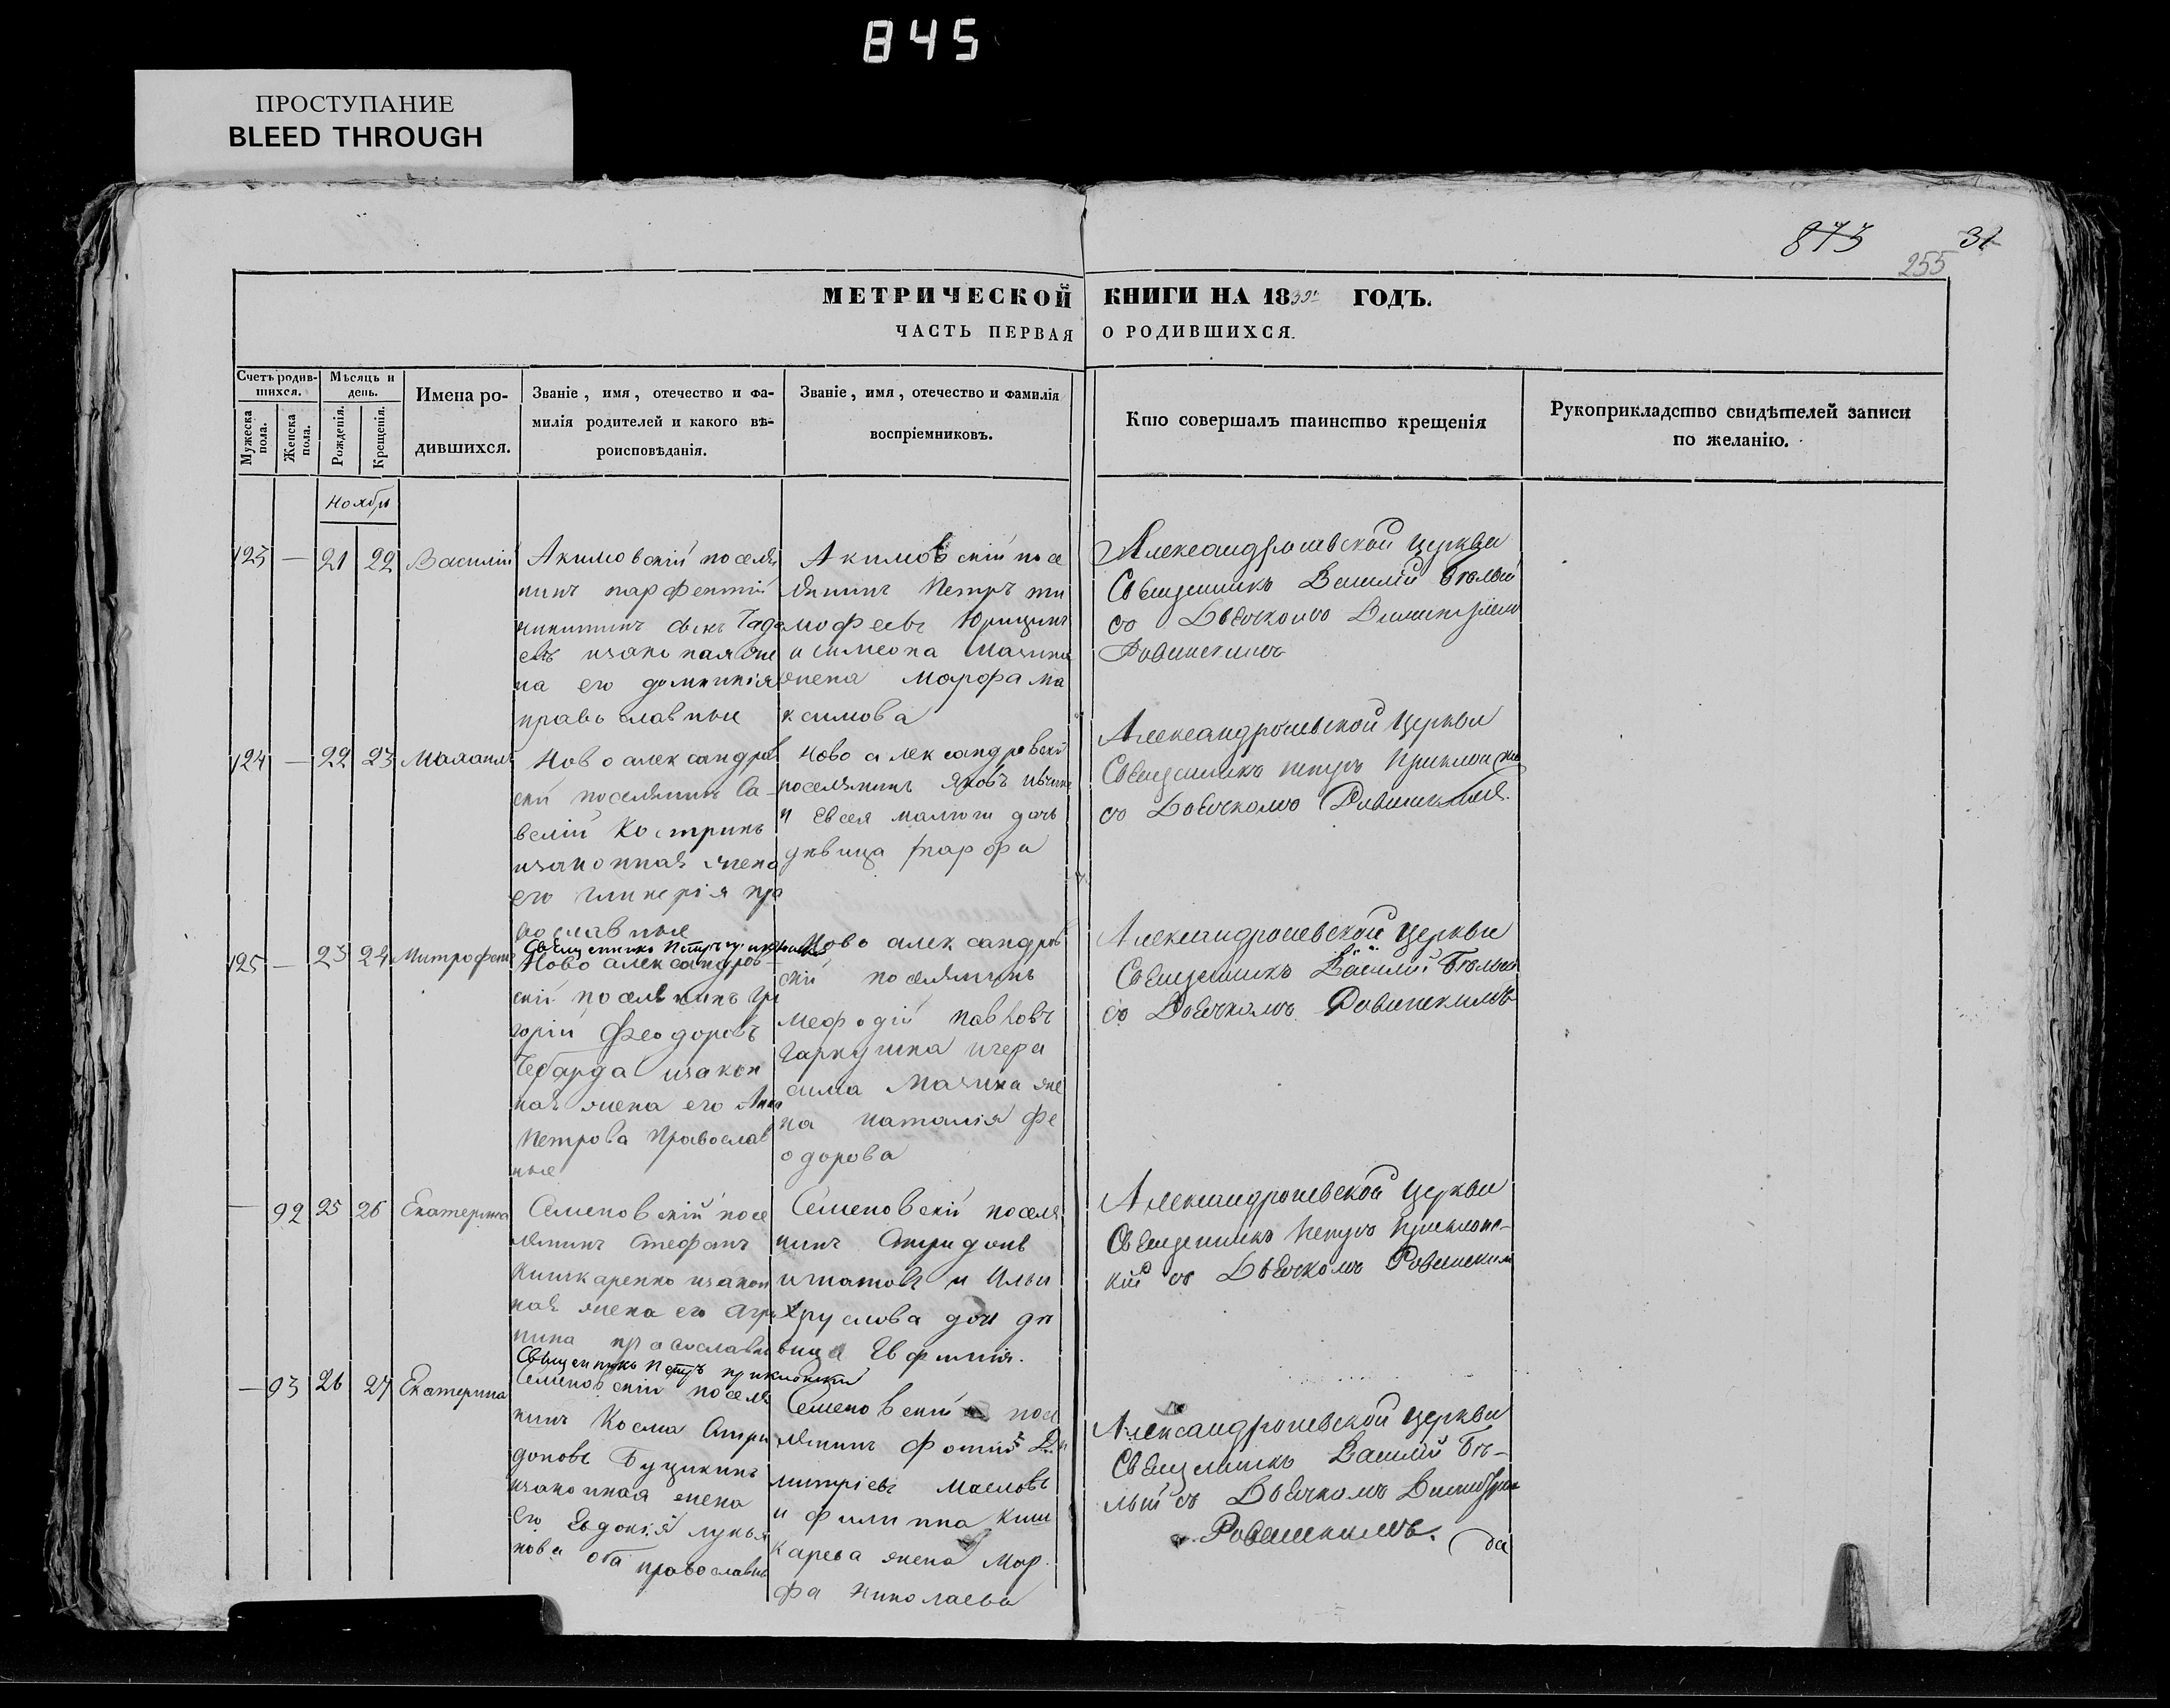 845
ПРОСТУПАНИЕ
BLEED THROUGH
873
255
МЕТРИЧЕСКОЙ КНИГИ НА 1839 ГОДЪ.
ЧАСТЬ ПЕРВАЯ О РОДИВШИХСЯ.
Счетъ родив-
шихся.
Мужеска
пола.
Женска
пола.
Мѣсяцъ и
день.
Рожденія.
Крещенія.
Имена ро-
дившихся.
Званіе, имя, отечество и фа-
милія родителей и какого вѣ-
роисповѣданія.
Званіе, имя, отечество и фамилія
воспріемниковъ.
Кто совершалъ таинство крещенія
Рукоприкладство свидѣтелей записи
по желанію.
Ноябрь
123 — 21 22 Василій
Акимовскій поселя
нинъ парфентій
никитинъ сынъ
изаконная же
на его домникія
православные
Акимовскій посе
лянинъ Петръ ти
мофеевъ Юрицинъ
и симеона Мазина
жена Марфа ма
ксимова
Александроневской церкви
Священникъ Василій Бѣлый
со Дьячкомъ Димитріем
Ровинскимъ
124 — 22 23
Новоалександров
скій поселянинъ Са-
велій Кострикъ
изаконная жена
его гликерія пра
вославные
Новоалександровскій
поселянинъ Яковъ
и Евсея малюги дочь
дѣвица
Александроневской церкви
Священникъ петръ Приклонскій
со Дьячкомъ Ровинскимъ
125 — 23 24 Митрофанъ
Священникъ Петръ приклонскій
Новоалександров-
скій поселянинъ Гри
горій Феодоровъ
Чебарда изакон
ная жена его Анна
Петрова Православ
ные
Новоалександров
скій поселянинъ
Мефодій павловъ
Гаркушка игера
сима Мазина же
на наталія Фе
одорова
Александроневской церкви
Священникъ Василій Бѣлый
со Дьячкомъ Ровинскимъ
— 92 25 26 Екатерина
Семеновскій посе
лянинъ Стефанъ
Кишкаренко изакон
ная жена его Агри
пина православн
Семеновскій поселя
нинъ Спиридонъ
игнатовъ и Ильи
Хруслова доч дѣ
вица Евфимія.
Александроневской церкви
Священникъ Петръ Приклонс-
кій со Дьячкомъ Ровинским
— 93 26 27 Екатерина
Священникъ Петръ приклонскій
Семеновскій поселя
нинъ Косма Спири
доновъ Буцикинъ
изаконная жена
его Евдокія лукья
нова оба православны
Семеновскій посе
лянинъ Фотій Ди
митріевъ Масловъ
и филиппа Киш
карева жена Мар
фа Николаева
Александроневской церкви
Священникъ Василій Бѣ-
лый съ Дьячкомъ Димитрі
Ровинскимъ.
да